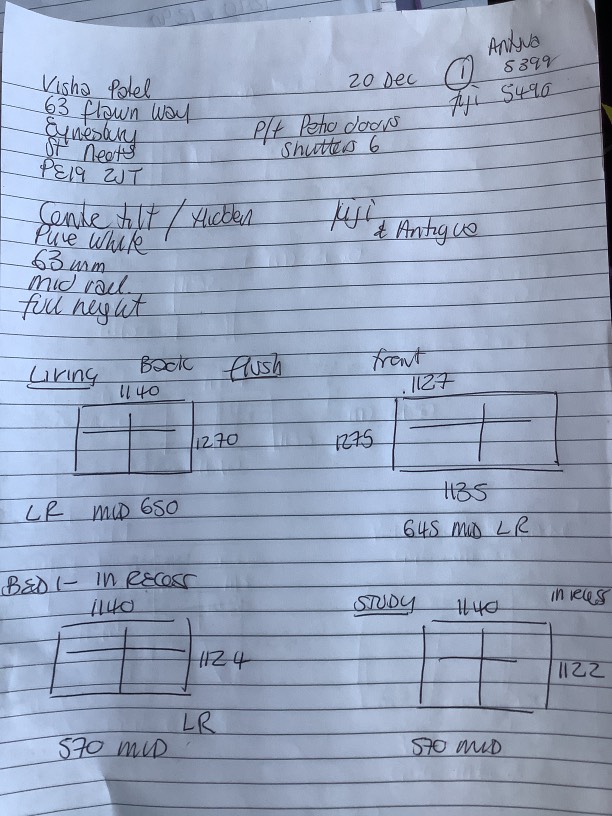 Antiva
① 5399
20 Dec
Fiji 5490
Visha Patel
63 flawn way
Eynesbury
St Neots
PE19 2JT
p/t Patio doors
shutters 6
Centre tilt / Hidden
Fiji
& Antigua
Pure white
63 mm
mid rail
full height
Living Back flush
1140
1270
LR MID 650
front
1127
1275
1135
645 MID LR
BED 1 - IN RECESS
1140
1124
LR
570 MID
STUDY 1140 in recess
1122
570 MID